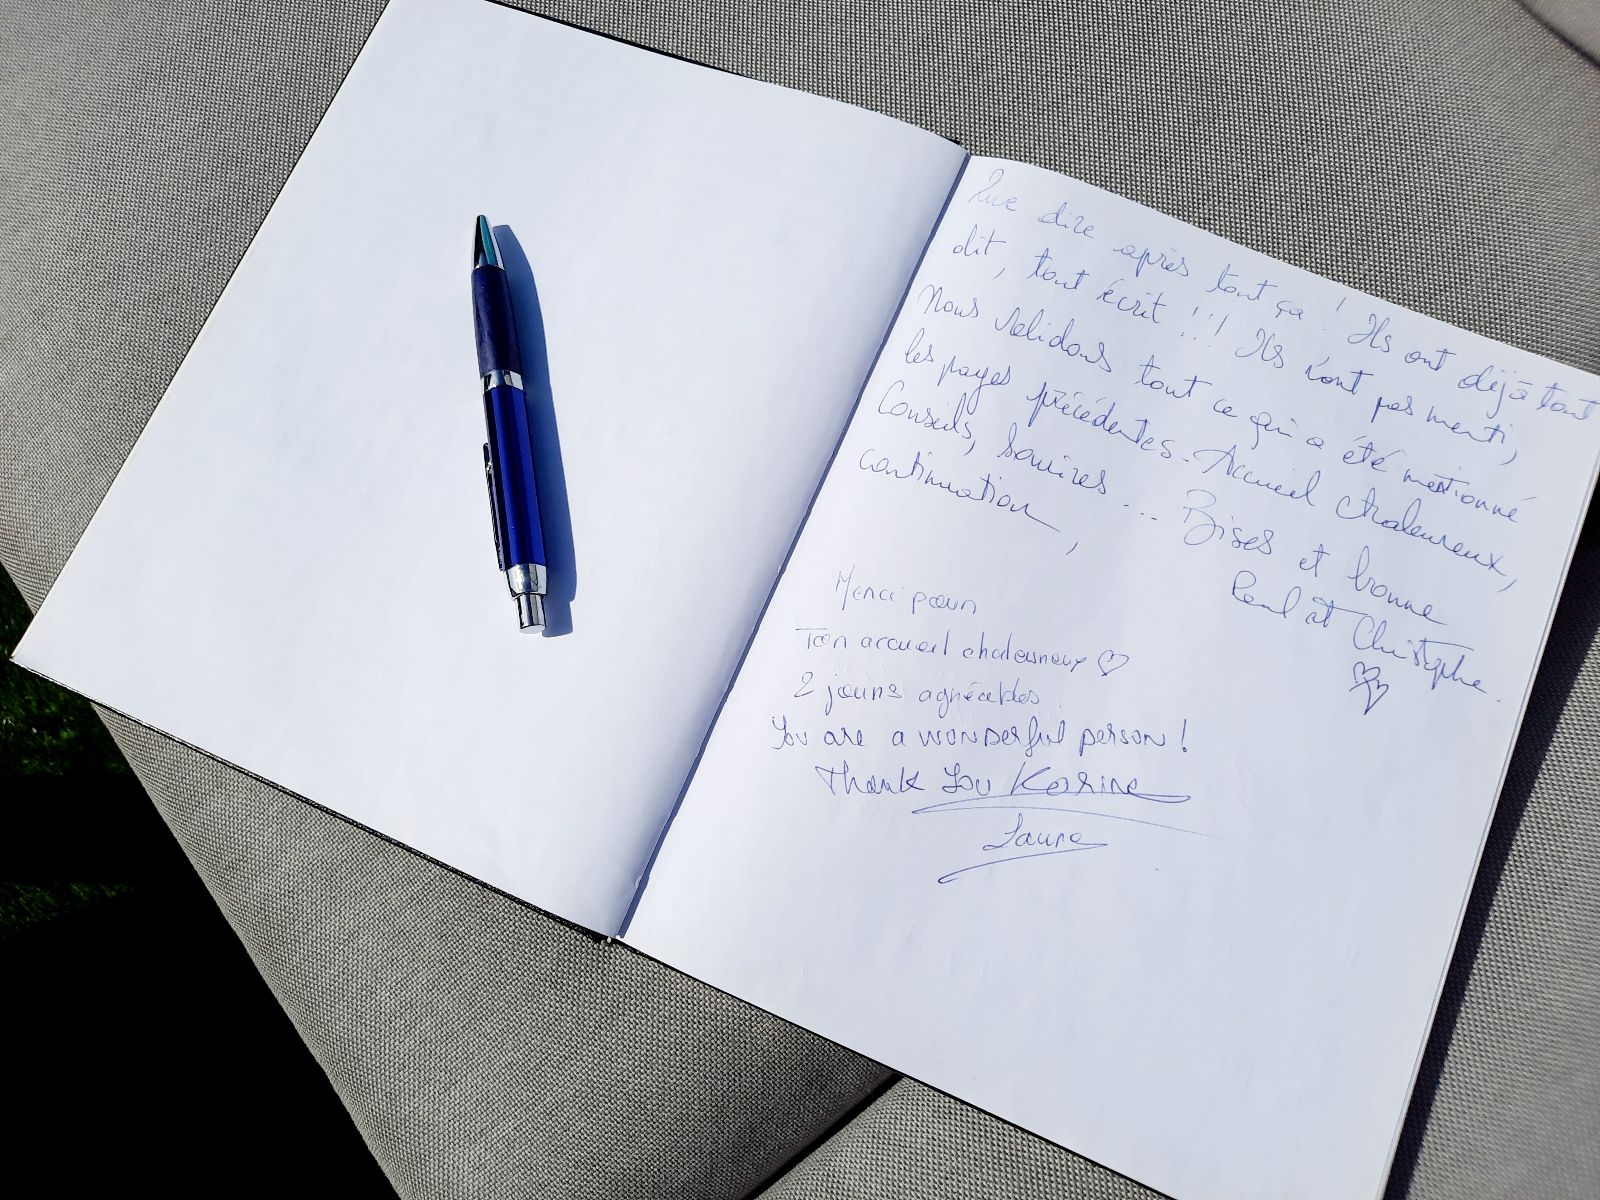 Que dire après tout ça ! Ils ont déjà tout
dit, tout écrit !!! Ils n'ont pas menti,
Nous validons tout ce qui a été mentionné
les pages précédentes. Accueil chaleureux,
Conseils, Sourires ... Bises et bonne
continuation,
et Christophe.
Merci pour
Ton accueil chaleureux ♡
2 jours agréables.
You are a wonderful person !
Thank You Karine
Laura